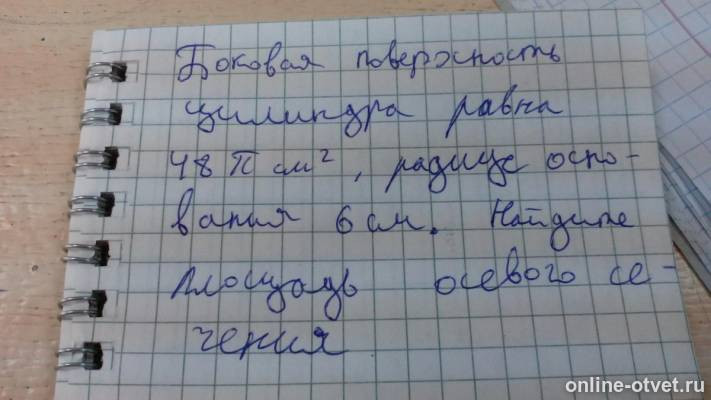 Боковая поверхность
цилиндра равна
48 π см², радиус осно-
вания 6 см. Найдите
площадь осевого се-
чения
online-otvet.ru